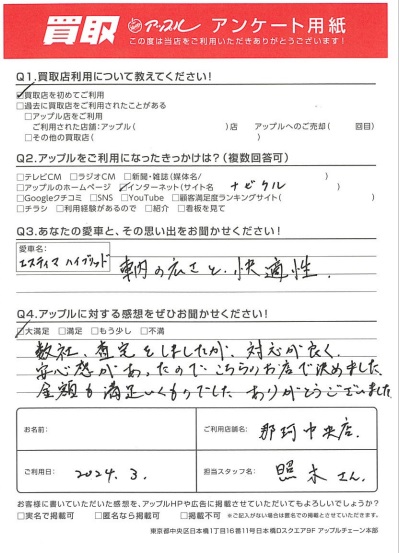 買取 アップル アンケート用紙
この度は当店をご利用いただきありがとうございます!
Q1.買取店利用について教えてください!
☑買取店を初めてご利用
□過去に買取店をご利用されたことがある
□アップル店をご利用
ご利用された店舗:アップル( )店 アップルへのご売却( 回目)
□その他の買取店( )
Q2.アップルをご利用になったきっかけは?(複数回答可)
□テレビCM □ラジオCM □新聞・雑誌(媒体名/ )
□アップルのホームページ ☑インターネット(サイト名 ナビクル )
□Googleクチコミ □SNS □YouTube □顧客満足度ランキングサイト( )
□チラシ □利用経験があるので □紹介 □看板を見て
Q3.あなたの愛車と、その思い出をお聞かせください!
愛車名:
エスティマ ハイブリッド
車内の広さと、快適性.
Q4.アップルに対する感想をぜひお聞かせください!
☑大満足 □満足 □もう少し □不満
数社、査定をしましたが、対応が良く、
安心感があったので、こちらのお店で決めました。
金額も満足いくものでした ありがとうございました
お名前:
ご利用店舗名: 那珂中央店.
ご利用日: 2024.3.
担当スタッフ名: 照木さん.
お客様に書いていただいた感想を、アップルHPや広告に掲載させていただいてもよろしいでしょうか?
□実名で掲載可 □匿名なら掲載可 □掲載不可 ※ご記入がない場合は匿名での掲載とさせていただきます。
東京都中央区日本橋1丁目16番11号日本橋Dスクエア9F アップルチェーン本部